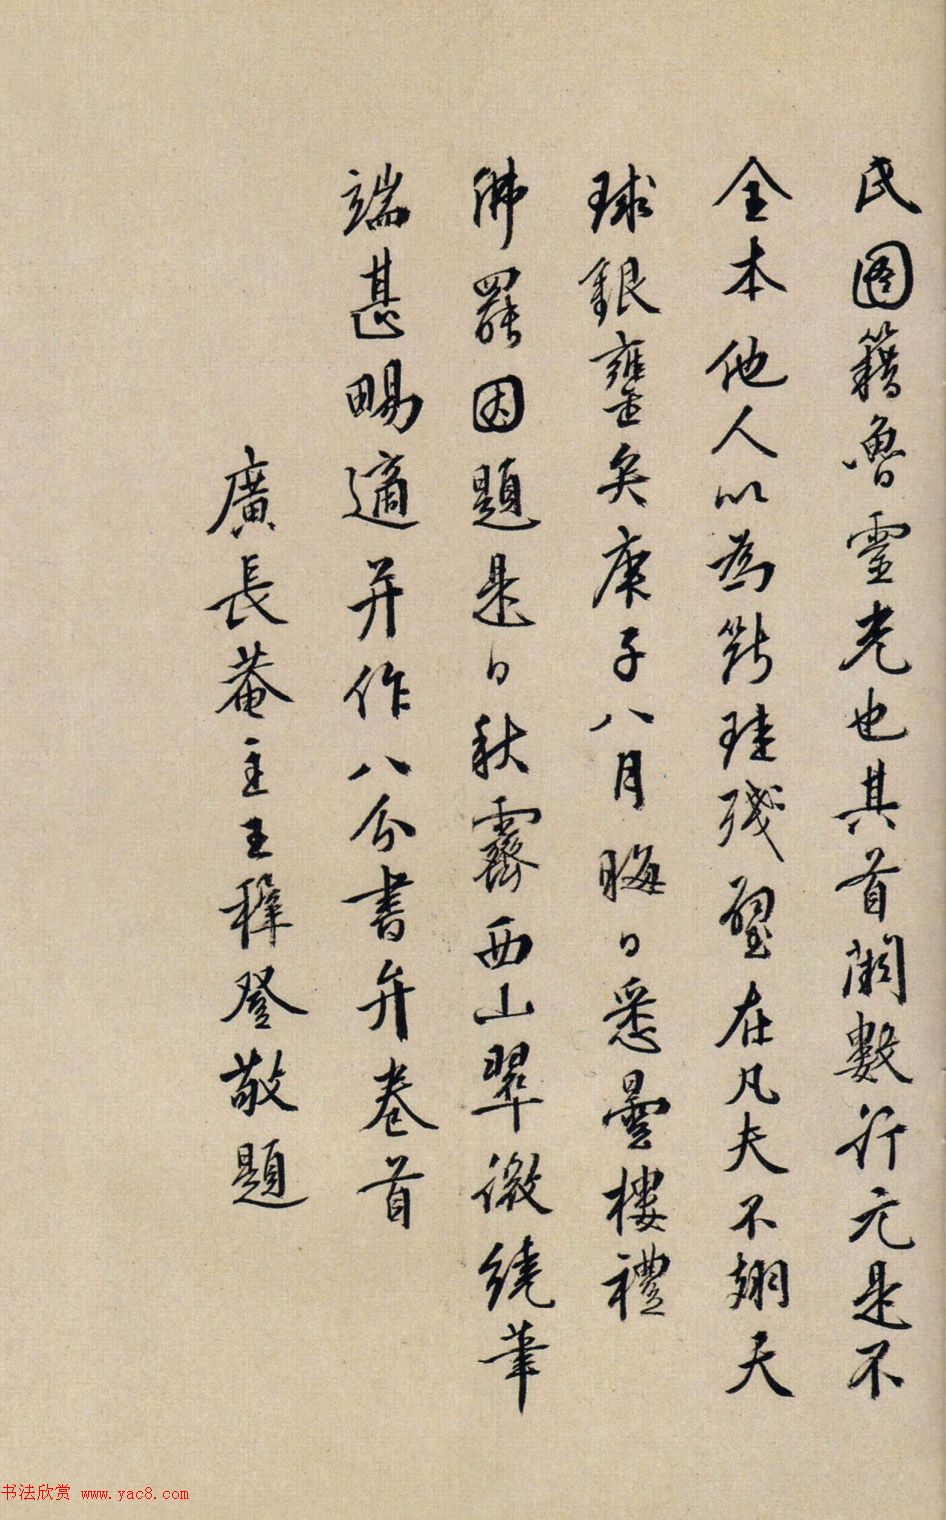 民圖籍魯靈光也其首闕數行元是不
全本他人以為斷珪殘璧在凡夫不翅天
球銀甕矣庚子八月晦日悉曇樓禮
佛罷因題是日秋霽西山翠微繞筆
端甚暢適并作八分書弁卷首
廣長菴主王穉登敬題
书法欣赏 www.yac8.com